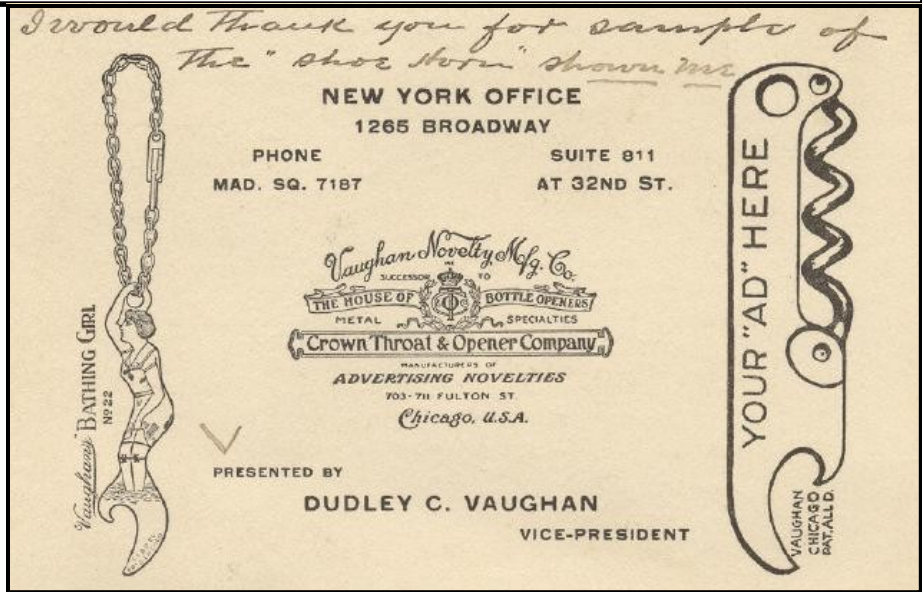 I would thank you for sample of
the "shoe horn" shown me
NEW YORK OFFICE
1265 BROADWAY
PHONE
MAD. SQ. 7187
SUITE 811
AT 32ND ST.
Vaughan's "BATHING GIRL
Nº 22
Vaughan Novelty Mfg. Co.
INC
SUCCESSOR TO
THE HOUSE OF BOTTLE OPENERS
METAL SPECIALTIES
Crown Throat & Opener Company
MANUFACTURERS OF
ADVERTISING NOVELTIES
703-711 FULTON ST.
Chicago, U.S.A.
PRESENTED BY
DUDLEY C. VAUGHAN
VICE-PRESIDENT
YOUR "AD" HERE
VAUGHAN
CHICAGO
PAT. ALL'D.